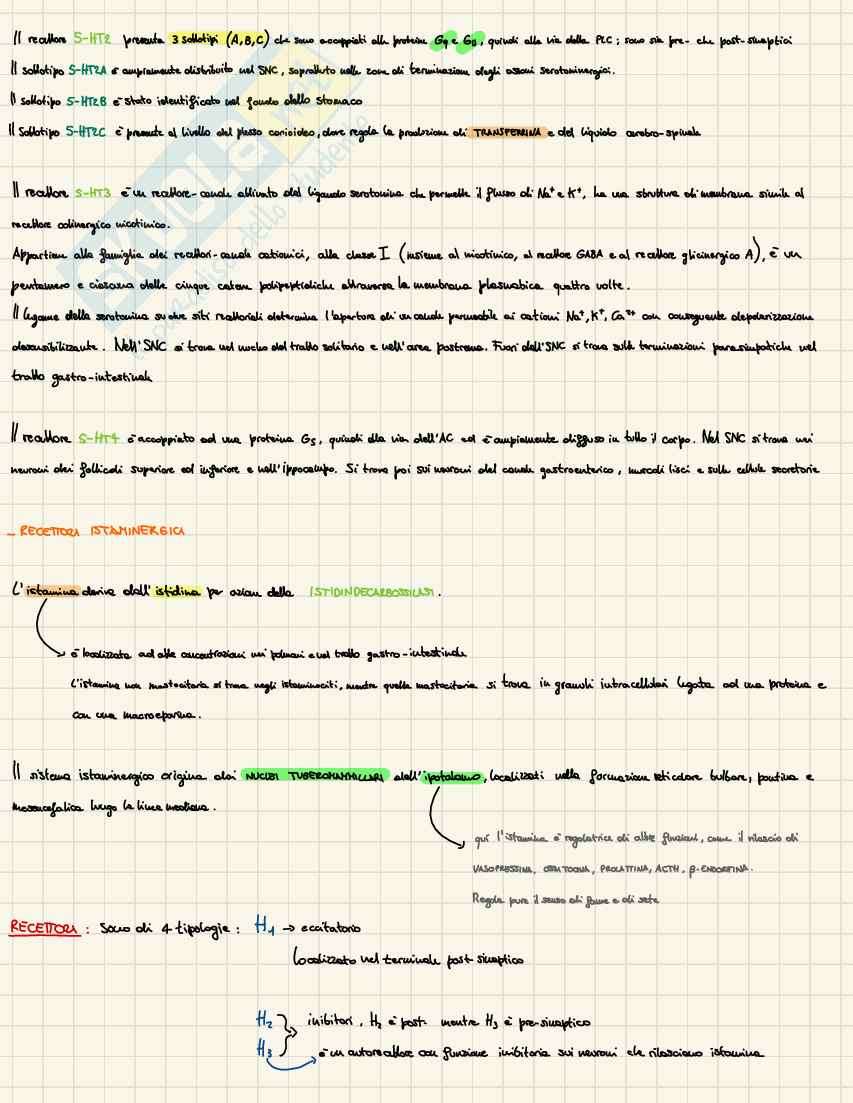 Il recettore 5-HT2 presenta 3 sottotipi (A,B,C) che sono accoppiati alle proteine Gq e G11, quindi alla via della PLC; sono sia pre- che post-sinaptici
Il sottotipo 5-HT2A è ampiamente distribuito nel SNC, soprattutto nelle zone di terminazione degli assoni serotoninergici.
Il sottotipo 5-HT2B è stato identificato nel fondo dello stomaco
Il sottotipo 5-HT2C è presente al livello del plesso corioideo, dove regola la produzione di TRANSFERRINA e del liquido cerebro-spinale
Il recettore 5-HT3 è un recettore-canale attivato dal ligando serotonina che permette il flusso di Na⁺ e K⁺, ha una struttura di membrana simile al
recettore colinergico nicotinico.
Appartiene alla famiglia dei recettori-canale cationici, alla classe I (insieme al nicotinico, al recettore GABA e al recettore glicinergico A), è un
pentamero e ciascuna delle cinque catene polipeptidiche attraversa la membrana plasmatica quattro volte.
Il legame della serotonina su due siti recettoriali determina l'apertura di un canale permeabile ai cationi Na⁺, K⁺, Ca²⁺ con conseguente depolarizzazione
desensibilizzante. Nell'SNC si trova nel nucleo del tratto solitario e nell'area postrema. Fuori dell'SNC si trova sulle terminazioni parasimpatiche nel
tratto gastro-intestinale
Il recettore 5-HT4 è accoppiato ad una proteina Gs, quindi alla via dell'AC ed è ampiamente diffuso in tutto il corpo. Nel SNC si trova nei
neuroni dei follicoli superiore ed inferiore e nell'ippocampo. Si trova poi sui neuroni del canale gastroenterico, muscoli lisci e sulle cellule secretorie
- RECETTORI ISTAMINERGICI
L'istamina deriva dall'istidina per azione della ISTIDINDECARBOSSILASI.
è localizzata ad alte concentrazioni nei polmoni e nel tratto gastro-intestinale
L'istamina non mastocitaria si trova negli istaminociti, mentre quella mastocitaria si trova in granuli intracellulari legata ad una proteina e
con una macroeparina.
Il sistema istaminergico origina dai NUCLEI TUBEROMAMMILLARI dell'ipotalamo, localizzati nella formazione reticolare bulbare, pontina e
mesencefalica lungo la linea mediana.
qui l'istamina è regolatrice di altre funzioni, come il rilascio di
VASOPRESSINA, OSSITOCINA, PROLATTINA, ACTH, β-ENDORFINA.
Regola pure il senso di fame e di sete
RECETTORI: Sono di 4 tipologie: H1 → eccitatorio
Localizzato nel terminale post-sinaptico
H2 inibitori, H2 è post- mentre H3 è pre-sinaptico
H3 è un autorecettore con funzione inibitoria sui neuroni che rilasciano istamina
SKUOLA.net
il paradiso dello studente